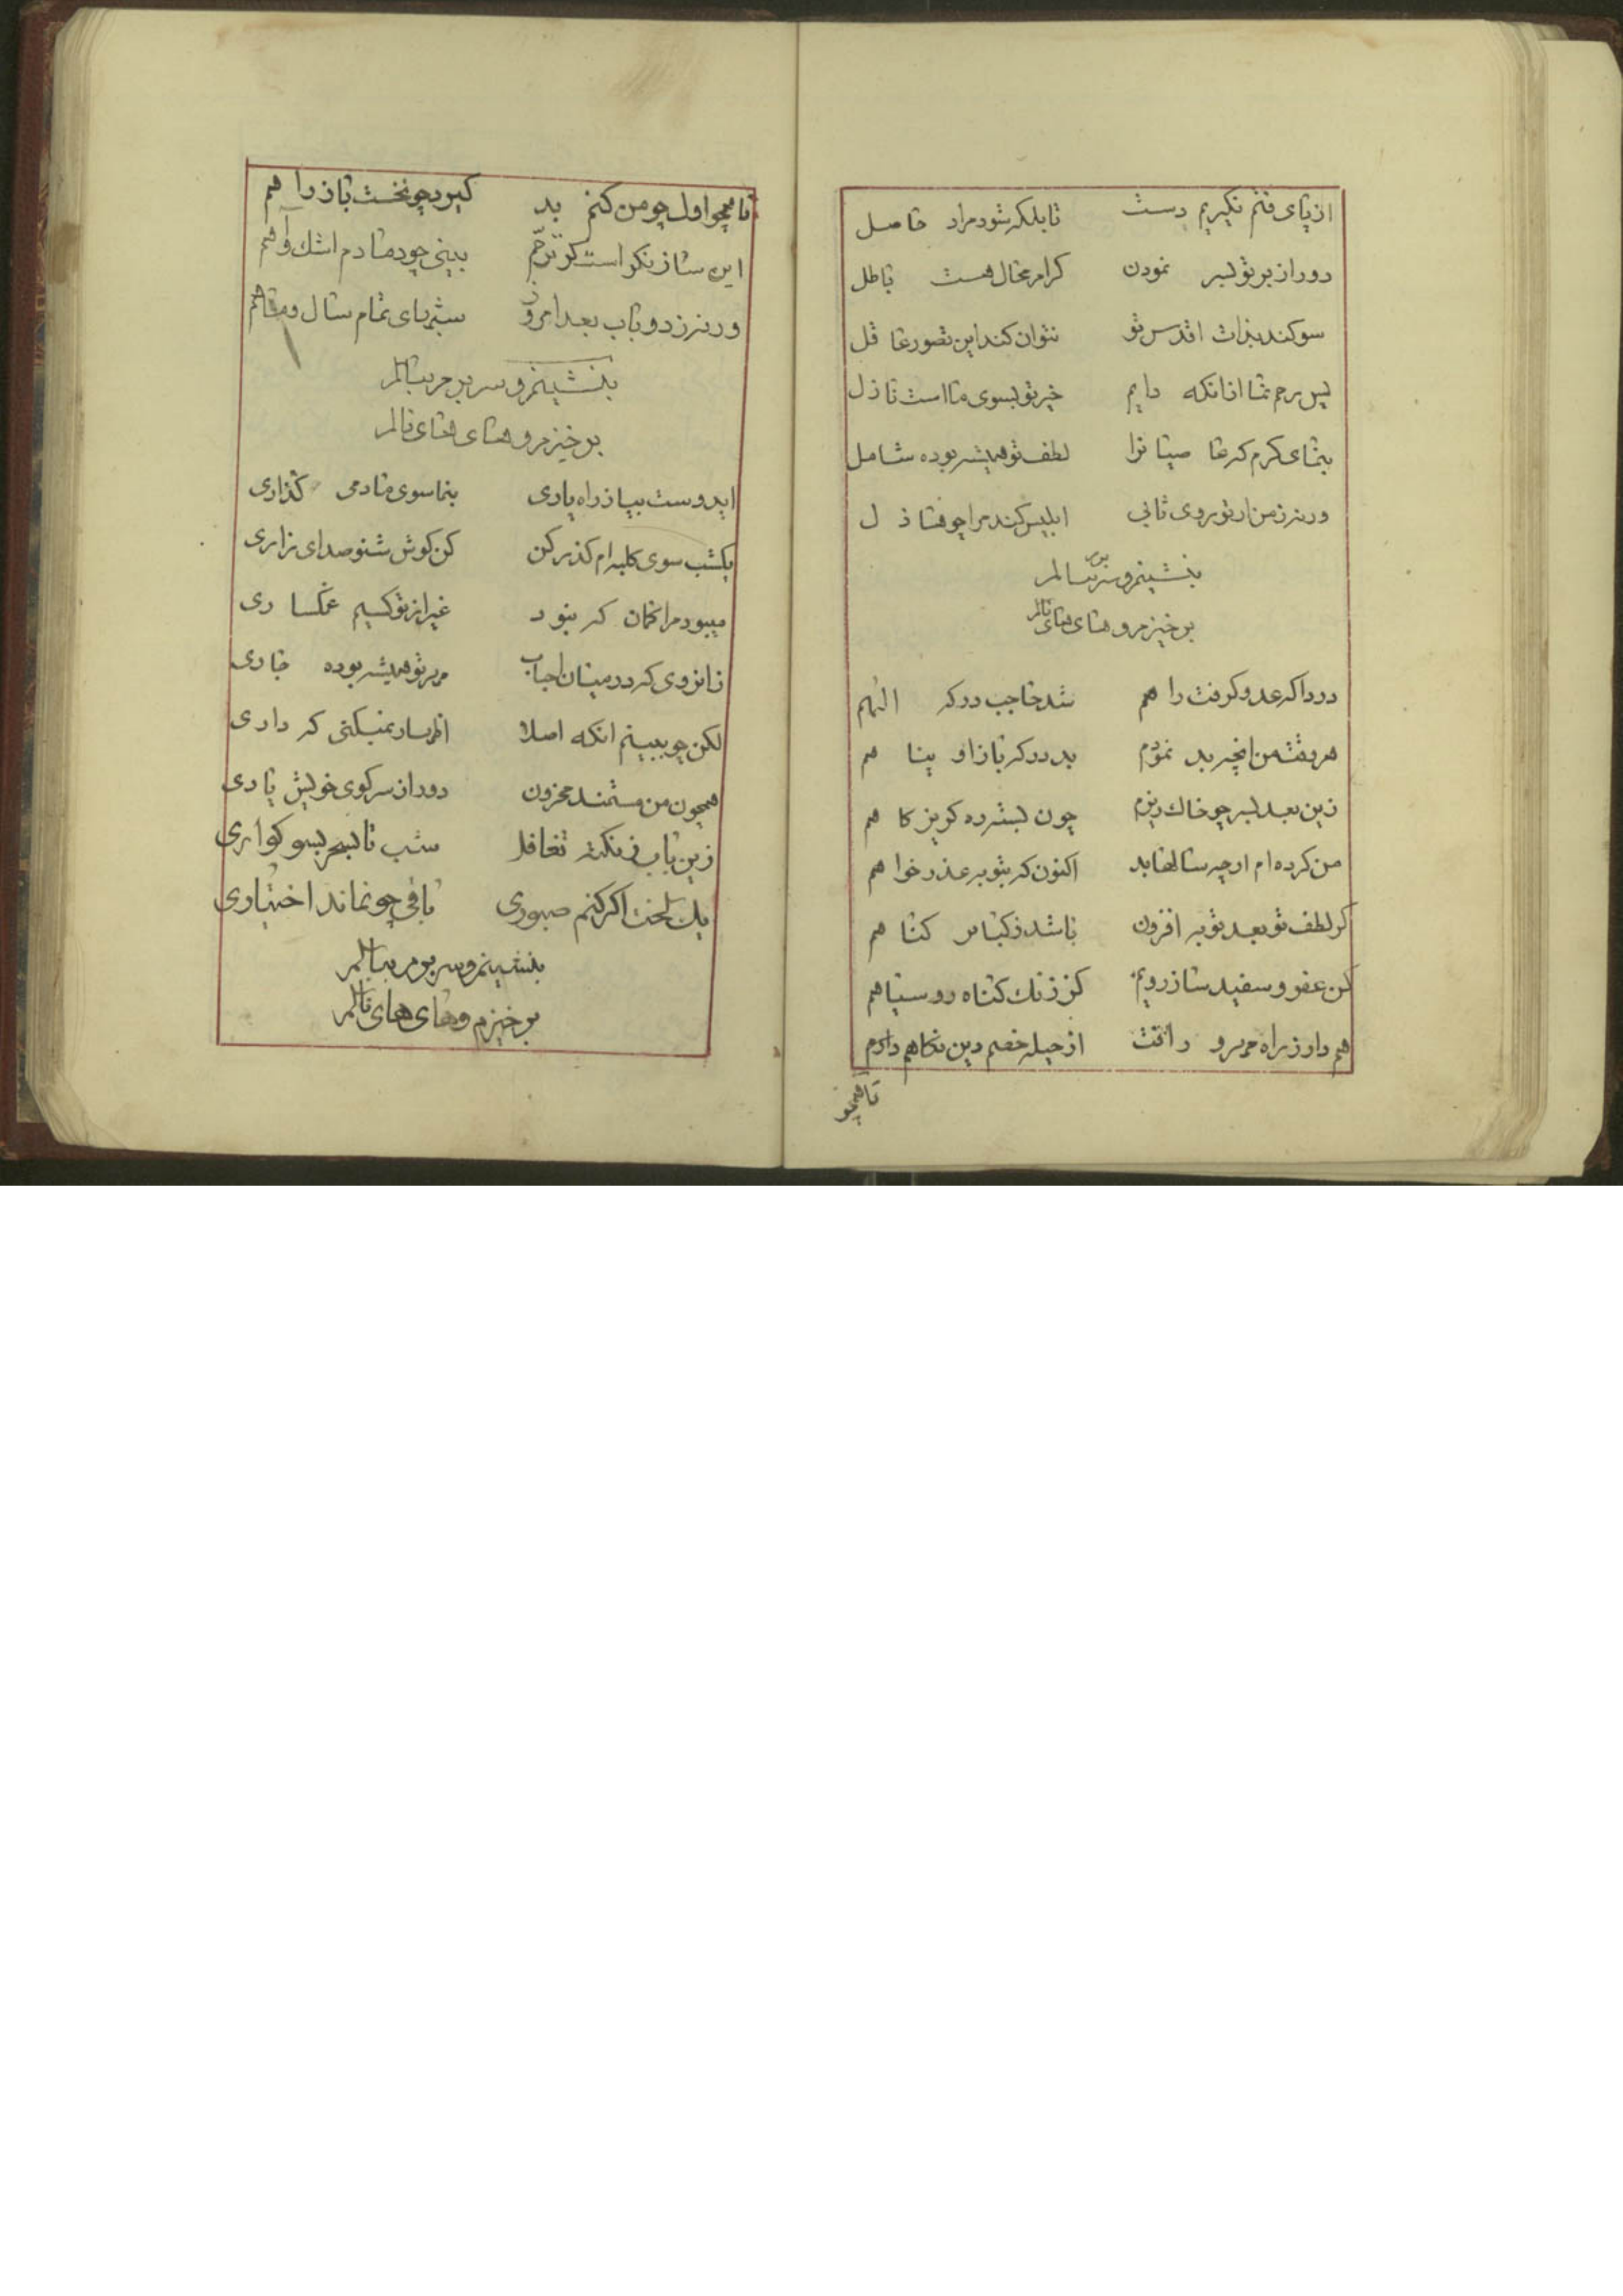 از پای فتم نگیریم دست تا بلکه شود مراد حاصل
دور از بر تو بسر نمودن کرام محال هست باطل
سوکند بذات اقدس تو نتوان کند این تصور عاقل
پس رحم نما از انکه دایم خیر تو بسوی ما است نازل
بنمای کرم که عاصیانرا لطف تو همیشه بوده شامل
ورنه ز من ار تو روی تابی ابلیس کند مرا چو
بنشینم و سر برم ببالم
برخیزم و های های نالم
دردا که عدو کرفت راهم شد حاجب درکه الهم
هر وقت من انچه بد نمودم بد درکه باز او پناهم
زین بعد بسر چو خاک ریزم چون بسته ره کریز کاهم
من کرده ام ارچه سالها بد اکنون که بتوبه عذر خواهم
کر لطف تو بعد توبه افزون باشد ز کبایر کناهم
کن عفو و سفید ساز رویم کز زنک کناه رو سیاهم
هم دار ز راه مهر و رافت از حیله خصم دین نکاهم دارم
تا همچو
تا همچو اول چو من کنم بد کیرد چو نخست باز راهم
این ساز نکو است کو ترحم بینی چو دمادم اشک و آهم
ورنه ز دو باب بعد امروز سیمای تمام سال و ماهم
بنشینم و سر برم ببالم
برخیزم و های های نالم
ایدوست بیا ز راه یاری بنما سوی ما دمی کذاری
یکشب سوی کلبه ام کذر کن کن کوش شنو صدای زاری
میبود مرا کمان که نبود غیر از تو کسیم غمکساری
زانروی که در میان احباب مهر تو همیشه بوده جاری
لکن چو ببینم انکه اصلا اظهار نمیکنی که داری
همچون من مستمند محزون دور از سر کوی خویش یاری
زین باب ز نکته تغافل شب تا بسحر بسوکواری
یک لخت اکر کنم صبوری باقی چو نماند اختیاری
بنشینم و سر برم ببالم
برخیزم و های های نالم